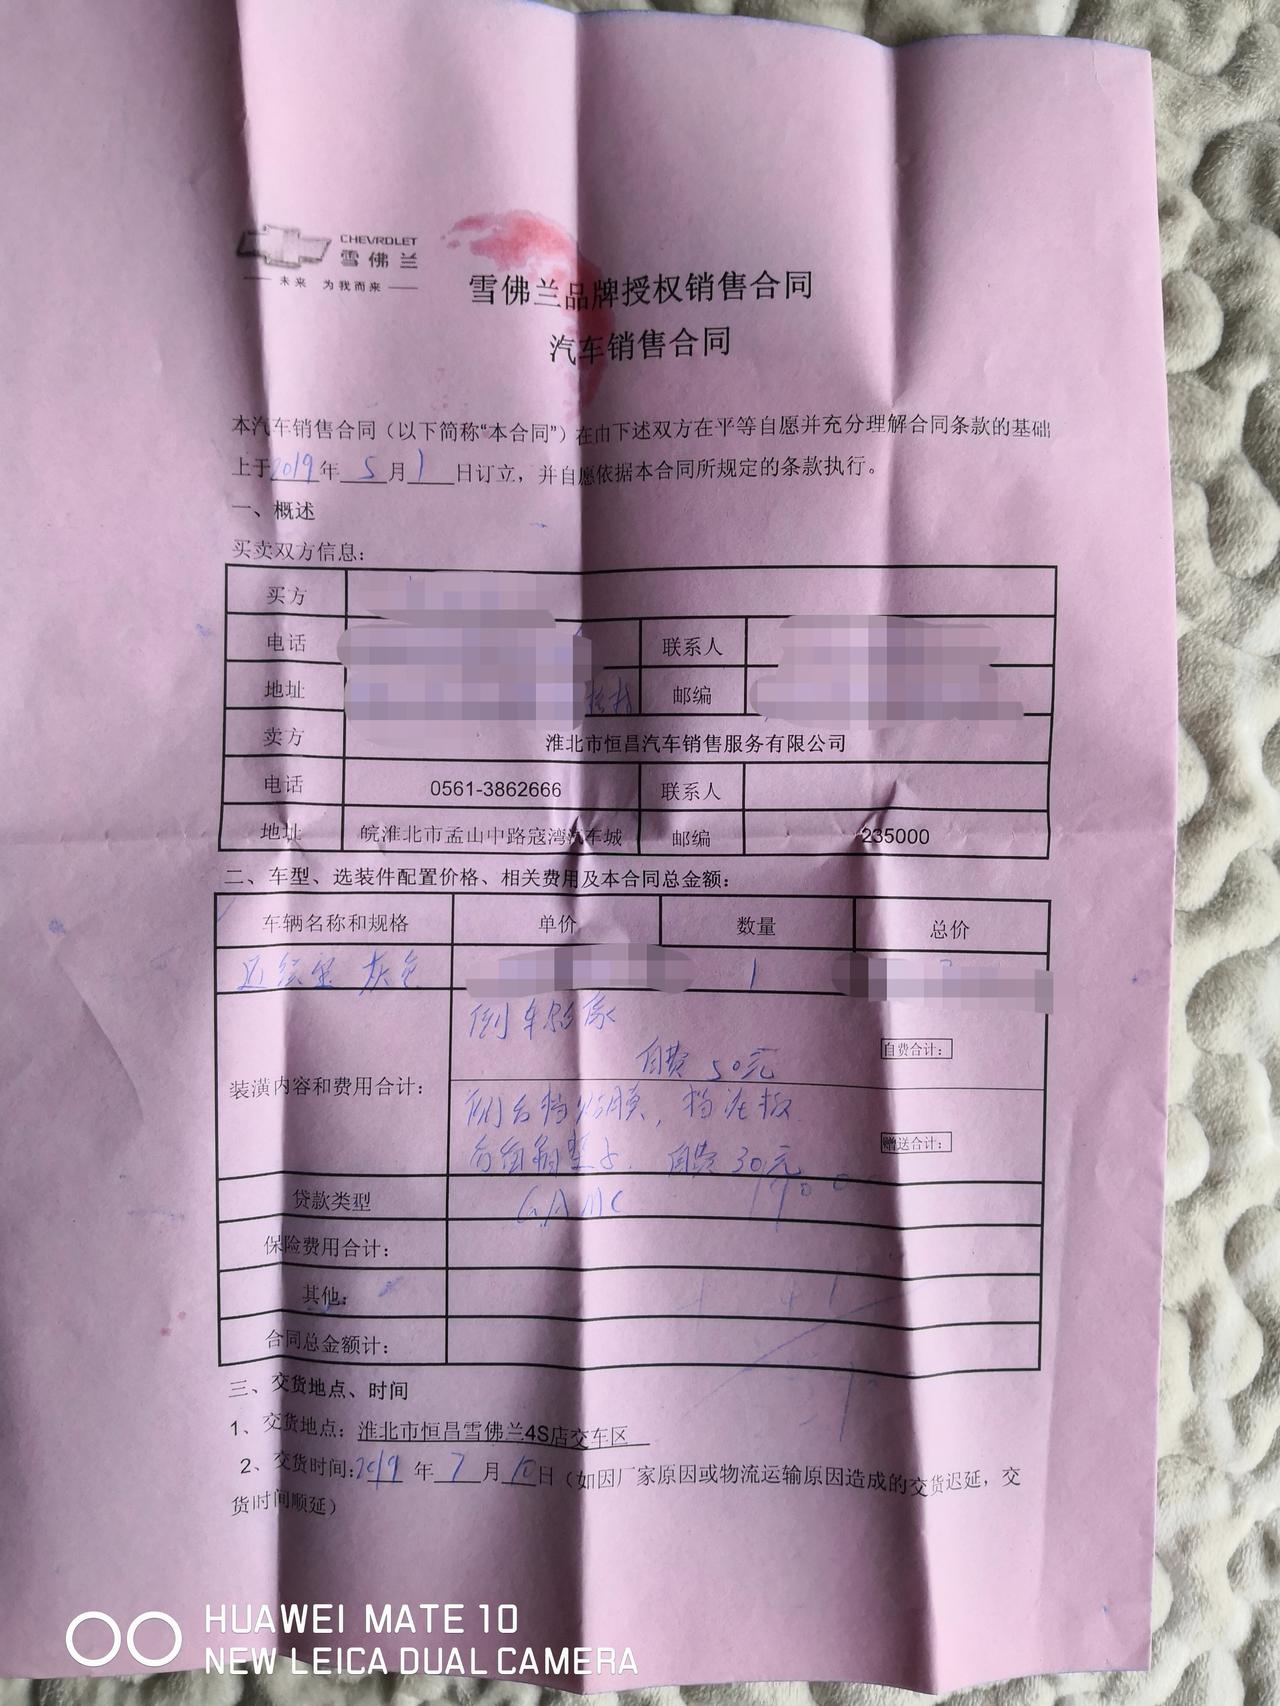 CHEVROLET
雪佛兰
未来 为我而来
雪佛兰品牌授权销售合同
汽车销售合同
本汽车销售合同（以下简称“本合同”）在由下述双方在平等自愿并充分理解合同条款的基础
上于2019年5月1日订立，并自愿依据本合同所规定的条款执行。
一、概述
买卖双方信息：
买方
电话 联系人
地址 邮编
卖方 淮北市恒昌汽车销售服务有限公司
电话 0561-3862666 联系人
地址 皖淮北市孟山中路寇湾汽车城 邮编 235000
二、车型、选装件配置价格、相关费用及本合同总金额：
车辆名称和规格 单价 数量 总价
灰色 1
倒车影像
自费合计：
自费 50元
装潢内容和费用合计：
贴膜，挡泥板
赠送合计：
自费 30元
贷款类型
保险费用合计：
其他：
合同总金额计：
三、交货地点、时间
1、交货地点：淮北市恒昌雪佛兰4S店交车区
2、交货时间：2019年7月10日（如因厂家原因或物流运输原因造成的交货迟延，交
货时间顺延）
HUAWEI MATE 10
NEW LEICA DUAL CAMERA